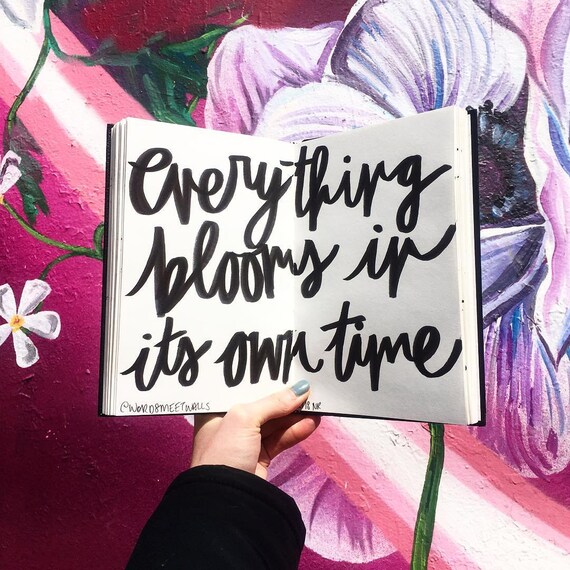 everything
blooms in
its own time
@WORDSMEETWALLS